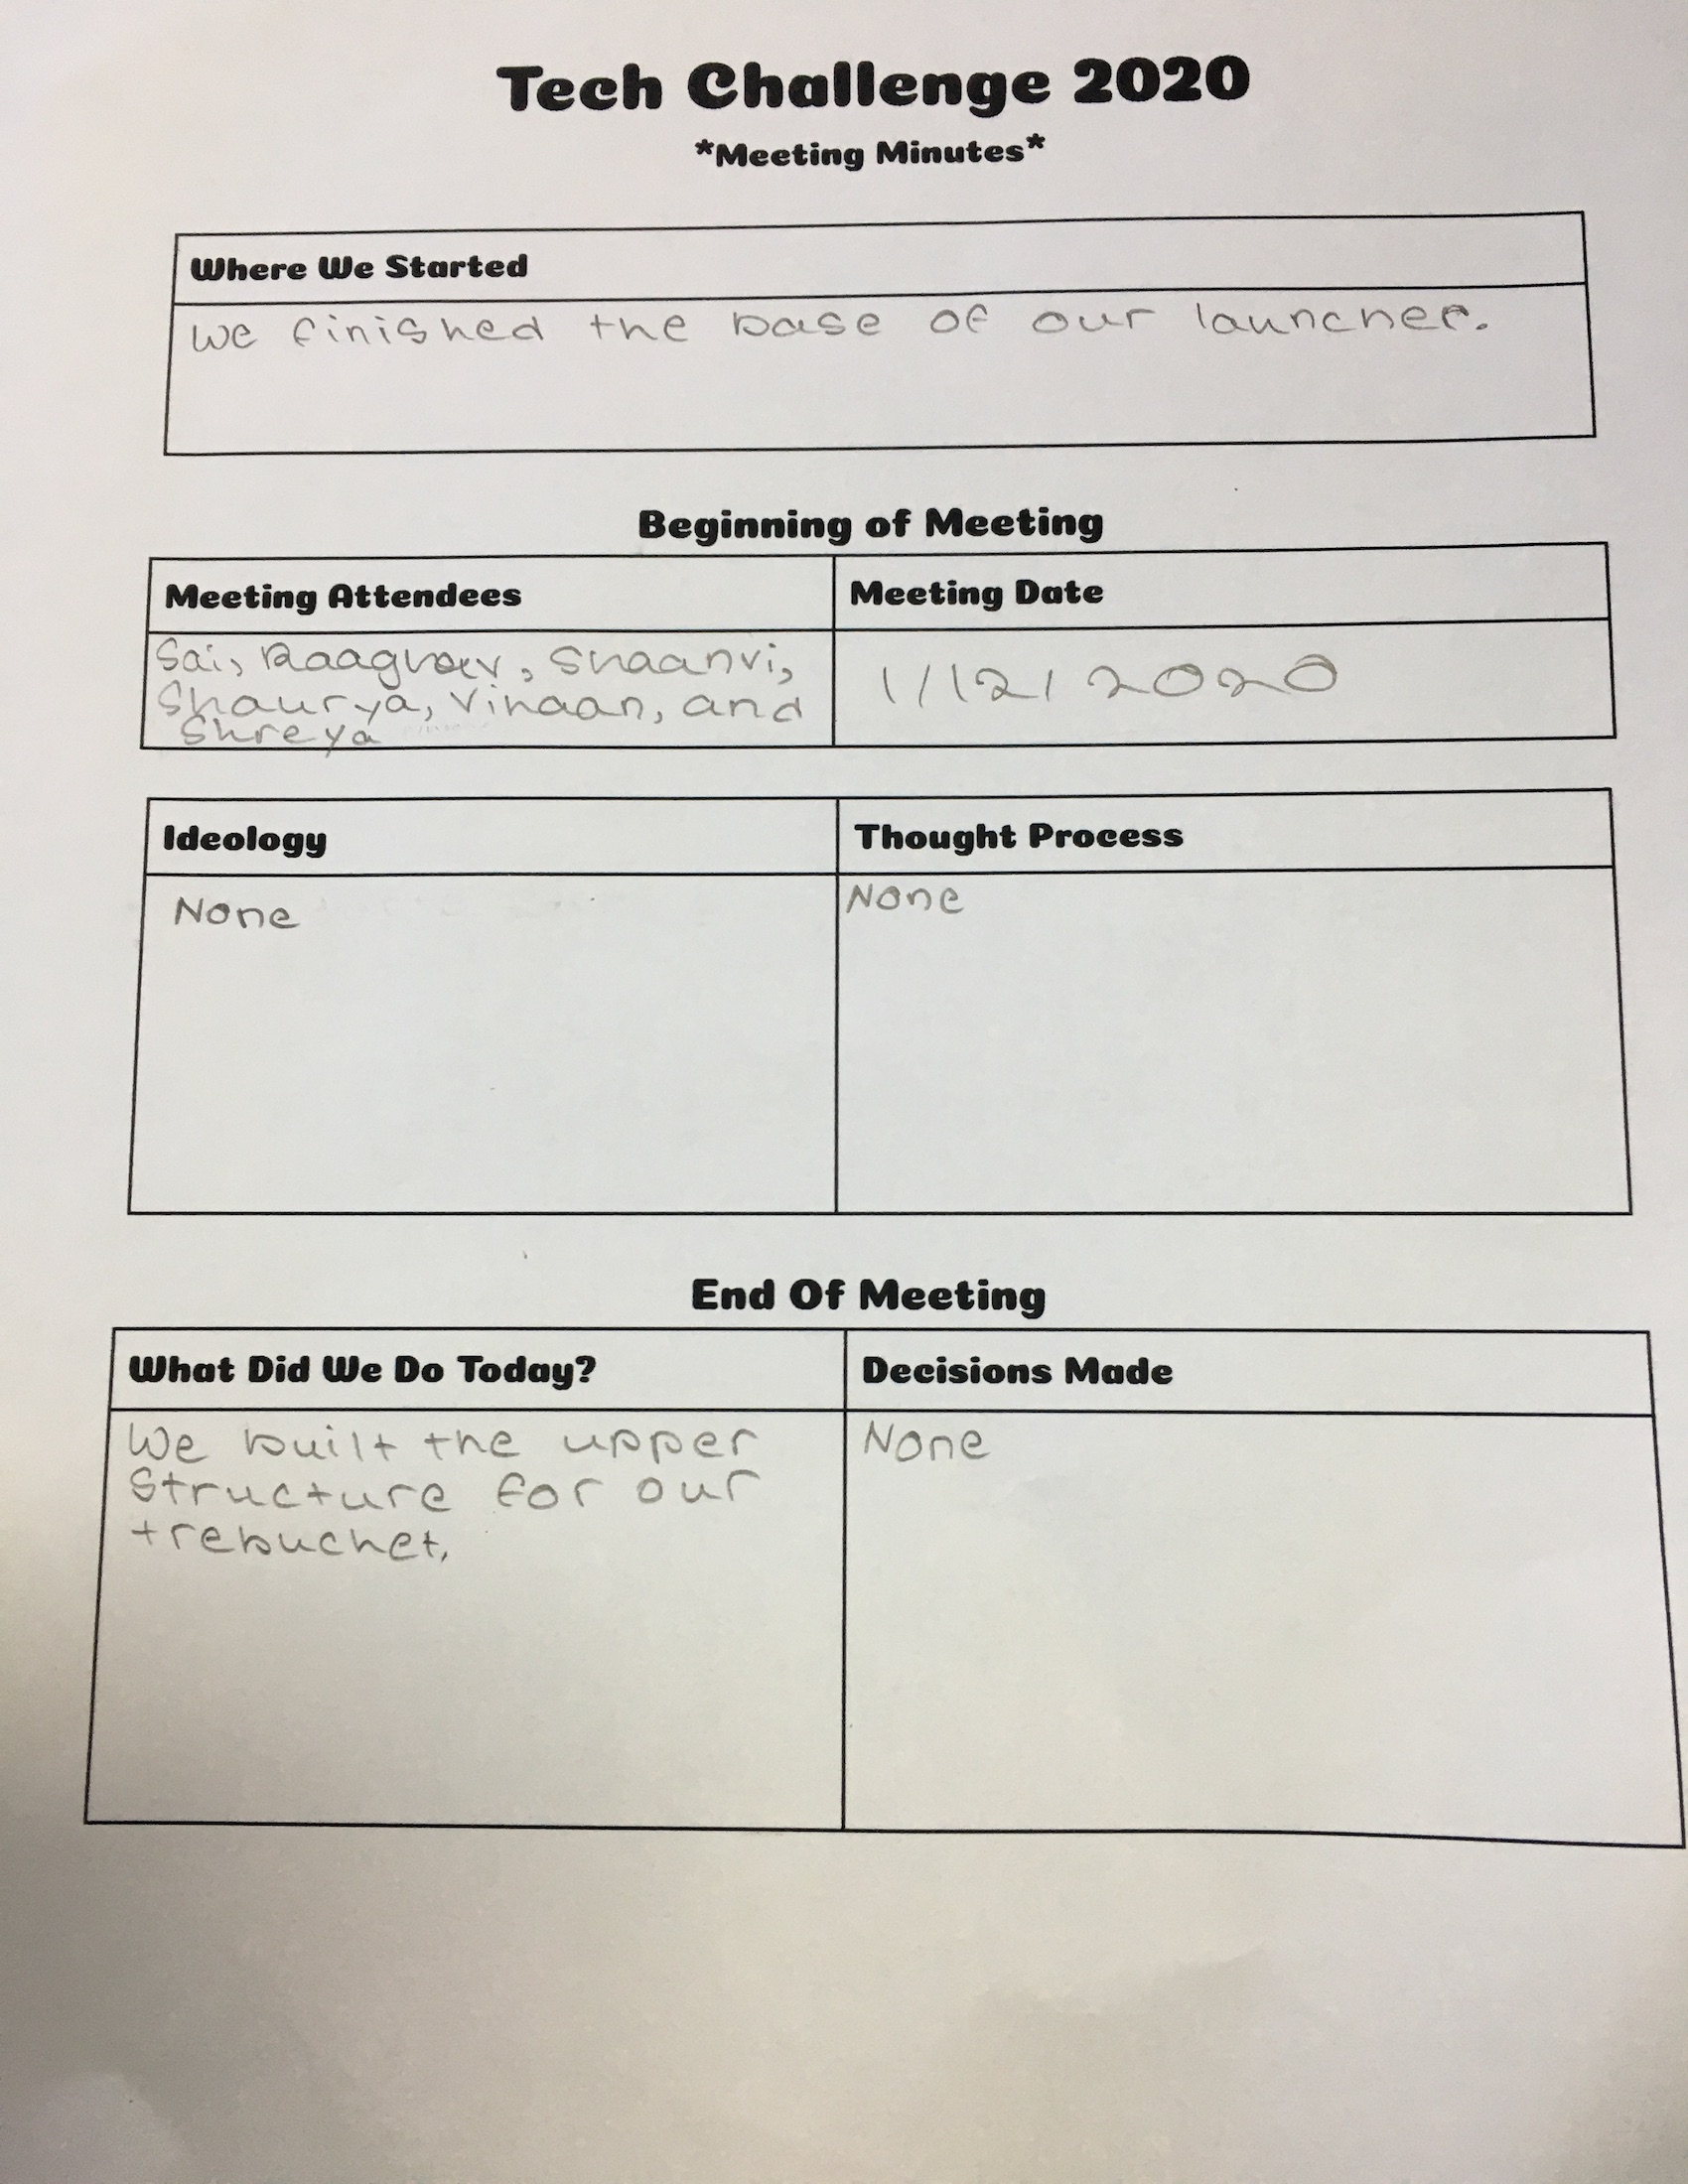 Tech Challenge 2020
*Meeting Minutes*
Where We Started
We finished the base of our launcher.
Beginning of Meeting
Meeting Attendees
Meeting Date
Sai, Raaghav, Shaanvi,
Shaurya, Vihaan, and
Shreya
1/12/2020
Ideology
Thought Process
None
None
End Of Meeting
What Did We Do Today?
Decisions Made
We built the upper
structure for our
trebuchet.
None